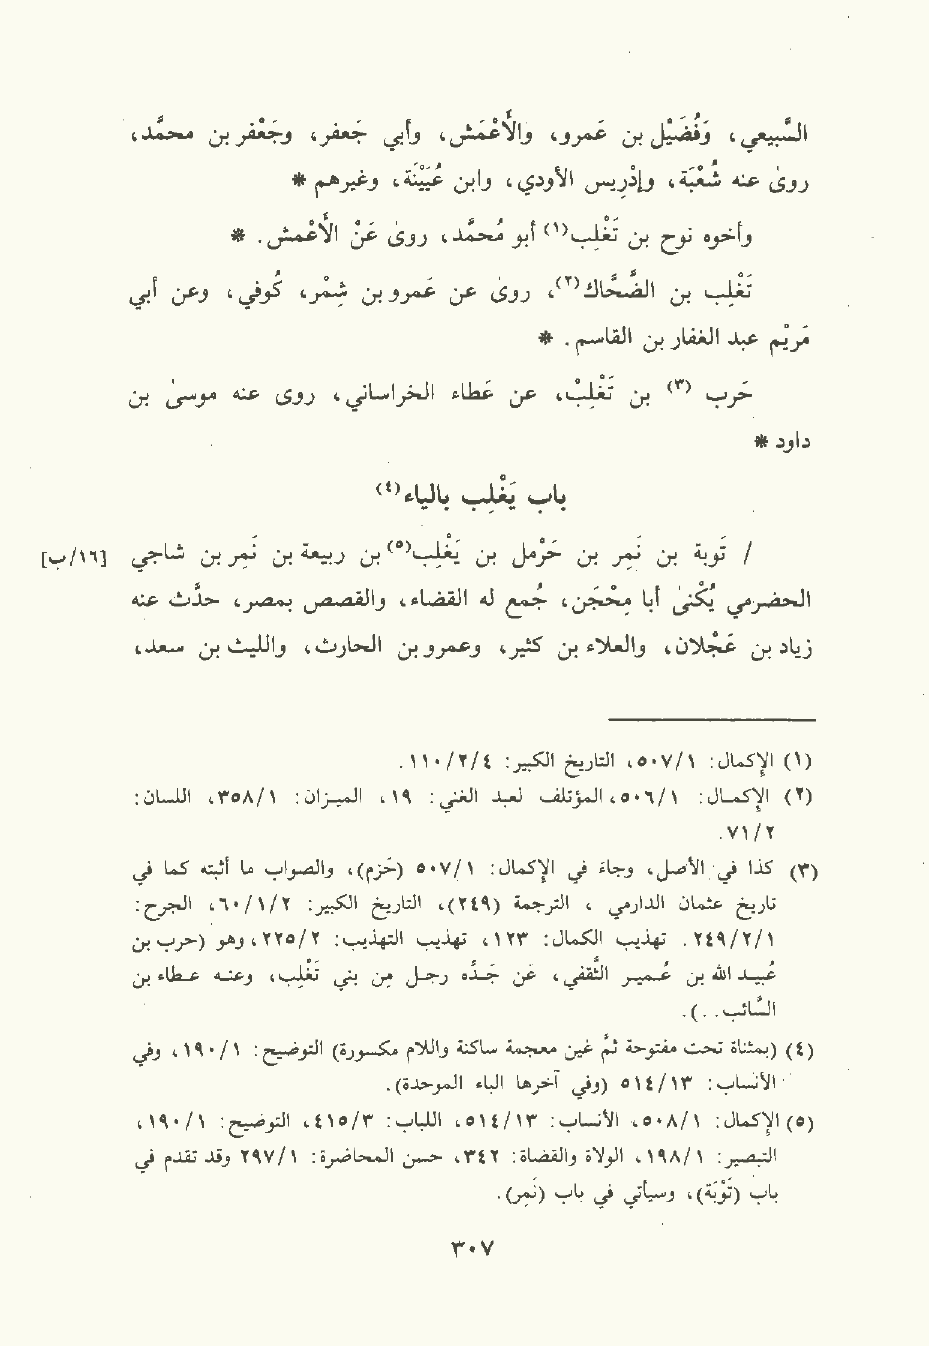 السَّبيعي، وَفُضَيْل بن عَمرو، والأَعْمَش، وأبي جَعفر، وجَعْفر بن محمَّد،
روىٰ عنه شُعْبَة، وإدْريس الأودي، وابن عُيَيْنَة، وغيرهم *
وأخوه نوح بن تَغْلِب(١) أبو مُحمَّد، روىٰ عَنْ الأَعْمش. *
تَغْلِب بن الضَّحَّاك(٢)، روىٰ عن عَمرو بن شِمْر، كُوفي، وعن أبي
مَريْم عبد الغفار بن القاسم. *
حَرب (٣) بن تَغْلِبْ، عن عَطاء الخراساني، روى عنه موسىٰ بن
داود *
باب يَغْلِب بالياء(٤)
/ تَوبة بن نَمِر بن حَرْمل بن يَغْلِب(٥) بن ربيعة بن نَمِر بن شاجي [١٦/ب]
الحضرمي يُكْنىٰ أبا مِحْجَن، جُمع له القضاء، والقصص بمصر، حدَّث عنه
زياد بن عَجْلان، والعلاء بن كثير، وعمرو بن الحارث، والليث بن سعد،
(١) الإكمال: ٥٠٧/١، التاريخ الكبير: ١١٠/٢/٤.
(٢) الإكمال: ٥٠٦/١، المؤتلف لعبد الغني: ١٩، الميزان: ٣٥٨/١، اللسان:
٧١/٢.
(٣) كذا في الأصل، وجاء في الإكمال: ٥٠٧/١ (حَزم)، والصواب ما أثبته كما في
تاريخ عثمان الدارمي ، الترجمة (٢٤٩)، التاريخ الكبير: ٦٠/١/٢، الجرح:
٢٤٩/٢/١. تهذيب الكمال: ١٢٣، تهذيب التهذيب: ٢٢٥/٢، وهو (حرب بن
عُبيد الله بن عُمير الثَّقفي، عَن جَدِّه رجل مِن بني تَغْلِب، وعنه عطاء بن
السَّائب. . .).
(٤) (بمثناة تحت مفتوحة ثمَّ غين معجمة ساكنة واللام مكسورة) التوضيح: ١٩٠/١، وفي
الأنساب: ٥١٤/١٣ (وفي آخرها الباء الموحدة).
(٥) الإكمال: ٥٠٨/١، الأنساب: ٥١٤/١٣، اللباب: ٤١٥/٣، التوضيح: ١٩٠/١،
التبصير: ١٩٨/١، الولاة والقضاة: ٣٤٢، حسن المحاضرة: ٢٩٧/١ وقد تقدم في
باب (تَوْبَة)، وسيأتي في باب (نَمِر).
٣٠٧